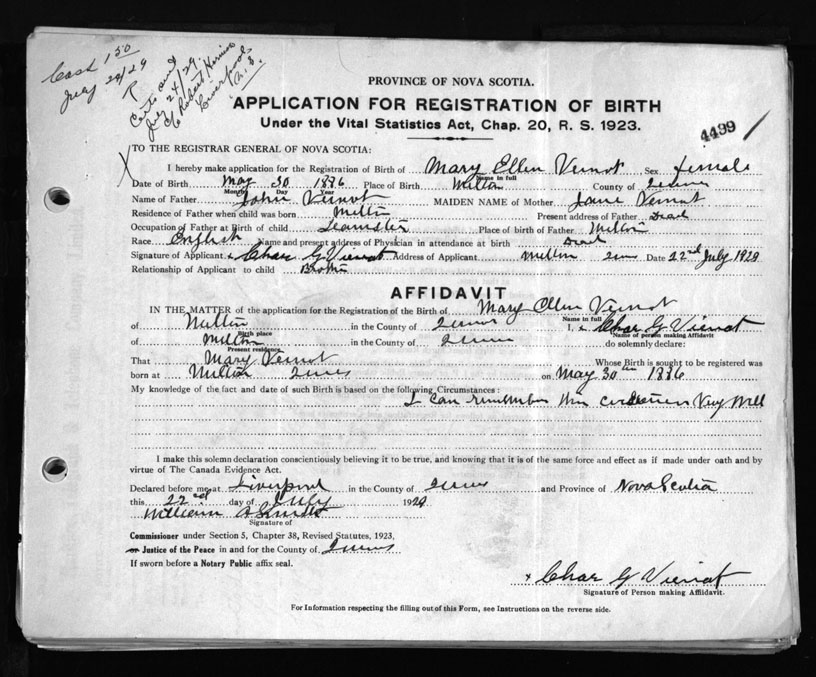 Cash 1 50
July 24/29
R
Certs and
July 24/29
c/o Robert
Liverpool
N.S.
PROVINCE OF NOVA SCOTIA.
APPLICATION FOR REGISTRATION OF BIRTH
Under the Vital Statistics Act, Chap. 20, R. S. 1923.
4499 /
X TO THE REGISTRAR GENERAL OF NOVA SCOTIA:
I hereby make application for the Registration of Birth of Mary Ellen Vernot Sex female
Name in full
Date of Birth May 30 1886 Place of Birth Milton County of Queens
Month Day Year
Name of Father John Vernot MAIDEN NAME of Mother Jane Vernot
Residence of Father when child was born Milton Present address of Father Dead
Occupation of Father at Birth of child Teamster Place of birth of Father Milton
Race English Name and present address of Physician in attendance at birth Dead
Signature of Applicant x Char G Viernot Address of Applicant Milton Date 22nd July 1929
Relationship of Applicant to child Brother
AFFIDAVIT
IN THE MATTER of the application for the Registration of the Birth of Mary Ellen Vernot
Name in full
of Milton in the County of Queens I, x Char G Viernot
Birth place Name of person making Affidavit
of Milton in the County of Queens do solemnly declare:
Present residence
That Mary Vernot Whose Birth is sought to be registered was
born at Milton Queens on May 30th 1886
My knowledge of the fact and date of such Birth is based on the following Circumstances:
I can remember the Very Well
I make this solemn declaration conscientiously believing it to be true, and knowing that it is of the same force and effect as if made under oath and by
virtue of The Canada Evidence Act.
Declared before me, at Liverpool in the County of Queens and Province of Nova Scotia
this 22nd day of July 1929
William A
Signature of
Commissioner under Section 5, Chapter 38, Revised Statutes, 1923,
or Justice of the Peace in and for the County of Queens
If sworn before a Notary Public affix seal.
x Char G Viernot
Signature of Person making Affidavit.
For Information respecting the filling out of this Form, see Instructions on the reverse side.